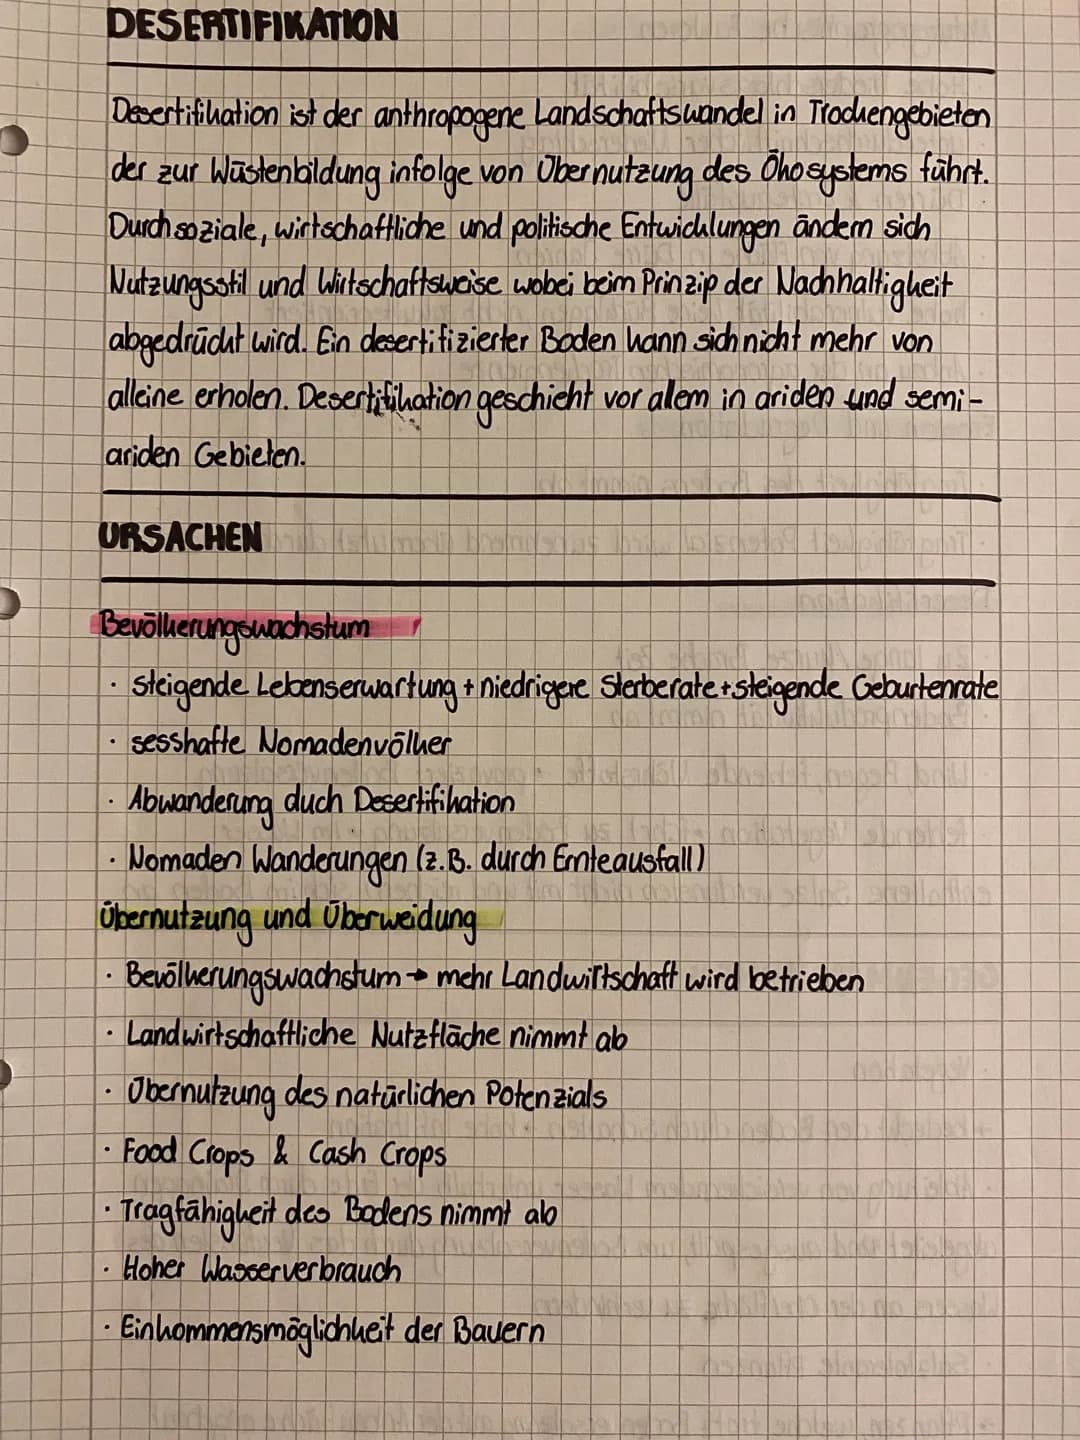 DESERTIFIKATION
Desertifikation ist der anthropogene Landschaftswandel in Trockengebieten
der zur Wüstenbildung infolge von Übernutzung des Ökosystems führt.
Durch soziale, wirtschaftliche und politische Entwicklungen ändern sich
Nutzungsstil und Wirtschaftsweise wobei beim Prinzip der Nachhaltigkeit
abgedrückt wird. Ein desertifizierter Boden kann sich nicht mehr von
alleine erholen. Desertifikation geschieht vor allem in ariden und semi-
ariden Gebieten.
URSACHEN
Bevölkerungswachstum
· steigende Lebenserwartung + niedrigere Sterberate + steigende Geburtenrate
· sesshafte Nomadenvölker
· Abwanderung duch Desertifikation
· Nomaden Wanderungen (z.B. durch Ernteausfall)
Übernutzung und Überweidung
· Bevölkerungswachstum → mehr Landwirtschaft wird betrieben
· Landwirtschaftliche Nutzfläche nimmt ab
· Übernutzung des natürlichen Potenzials
· Food Crops & Cash Crops
· Tragfähigkeit des Bodens nimmt ab
· Hoher Wasserverbrauch
· Einkommensmöglichkeit der Bauern